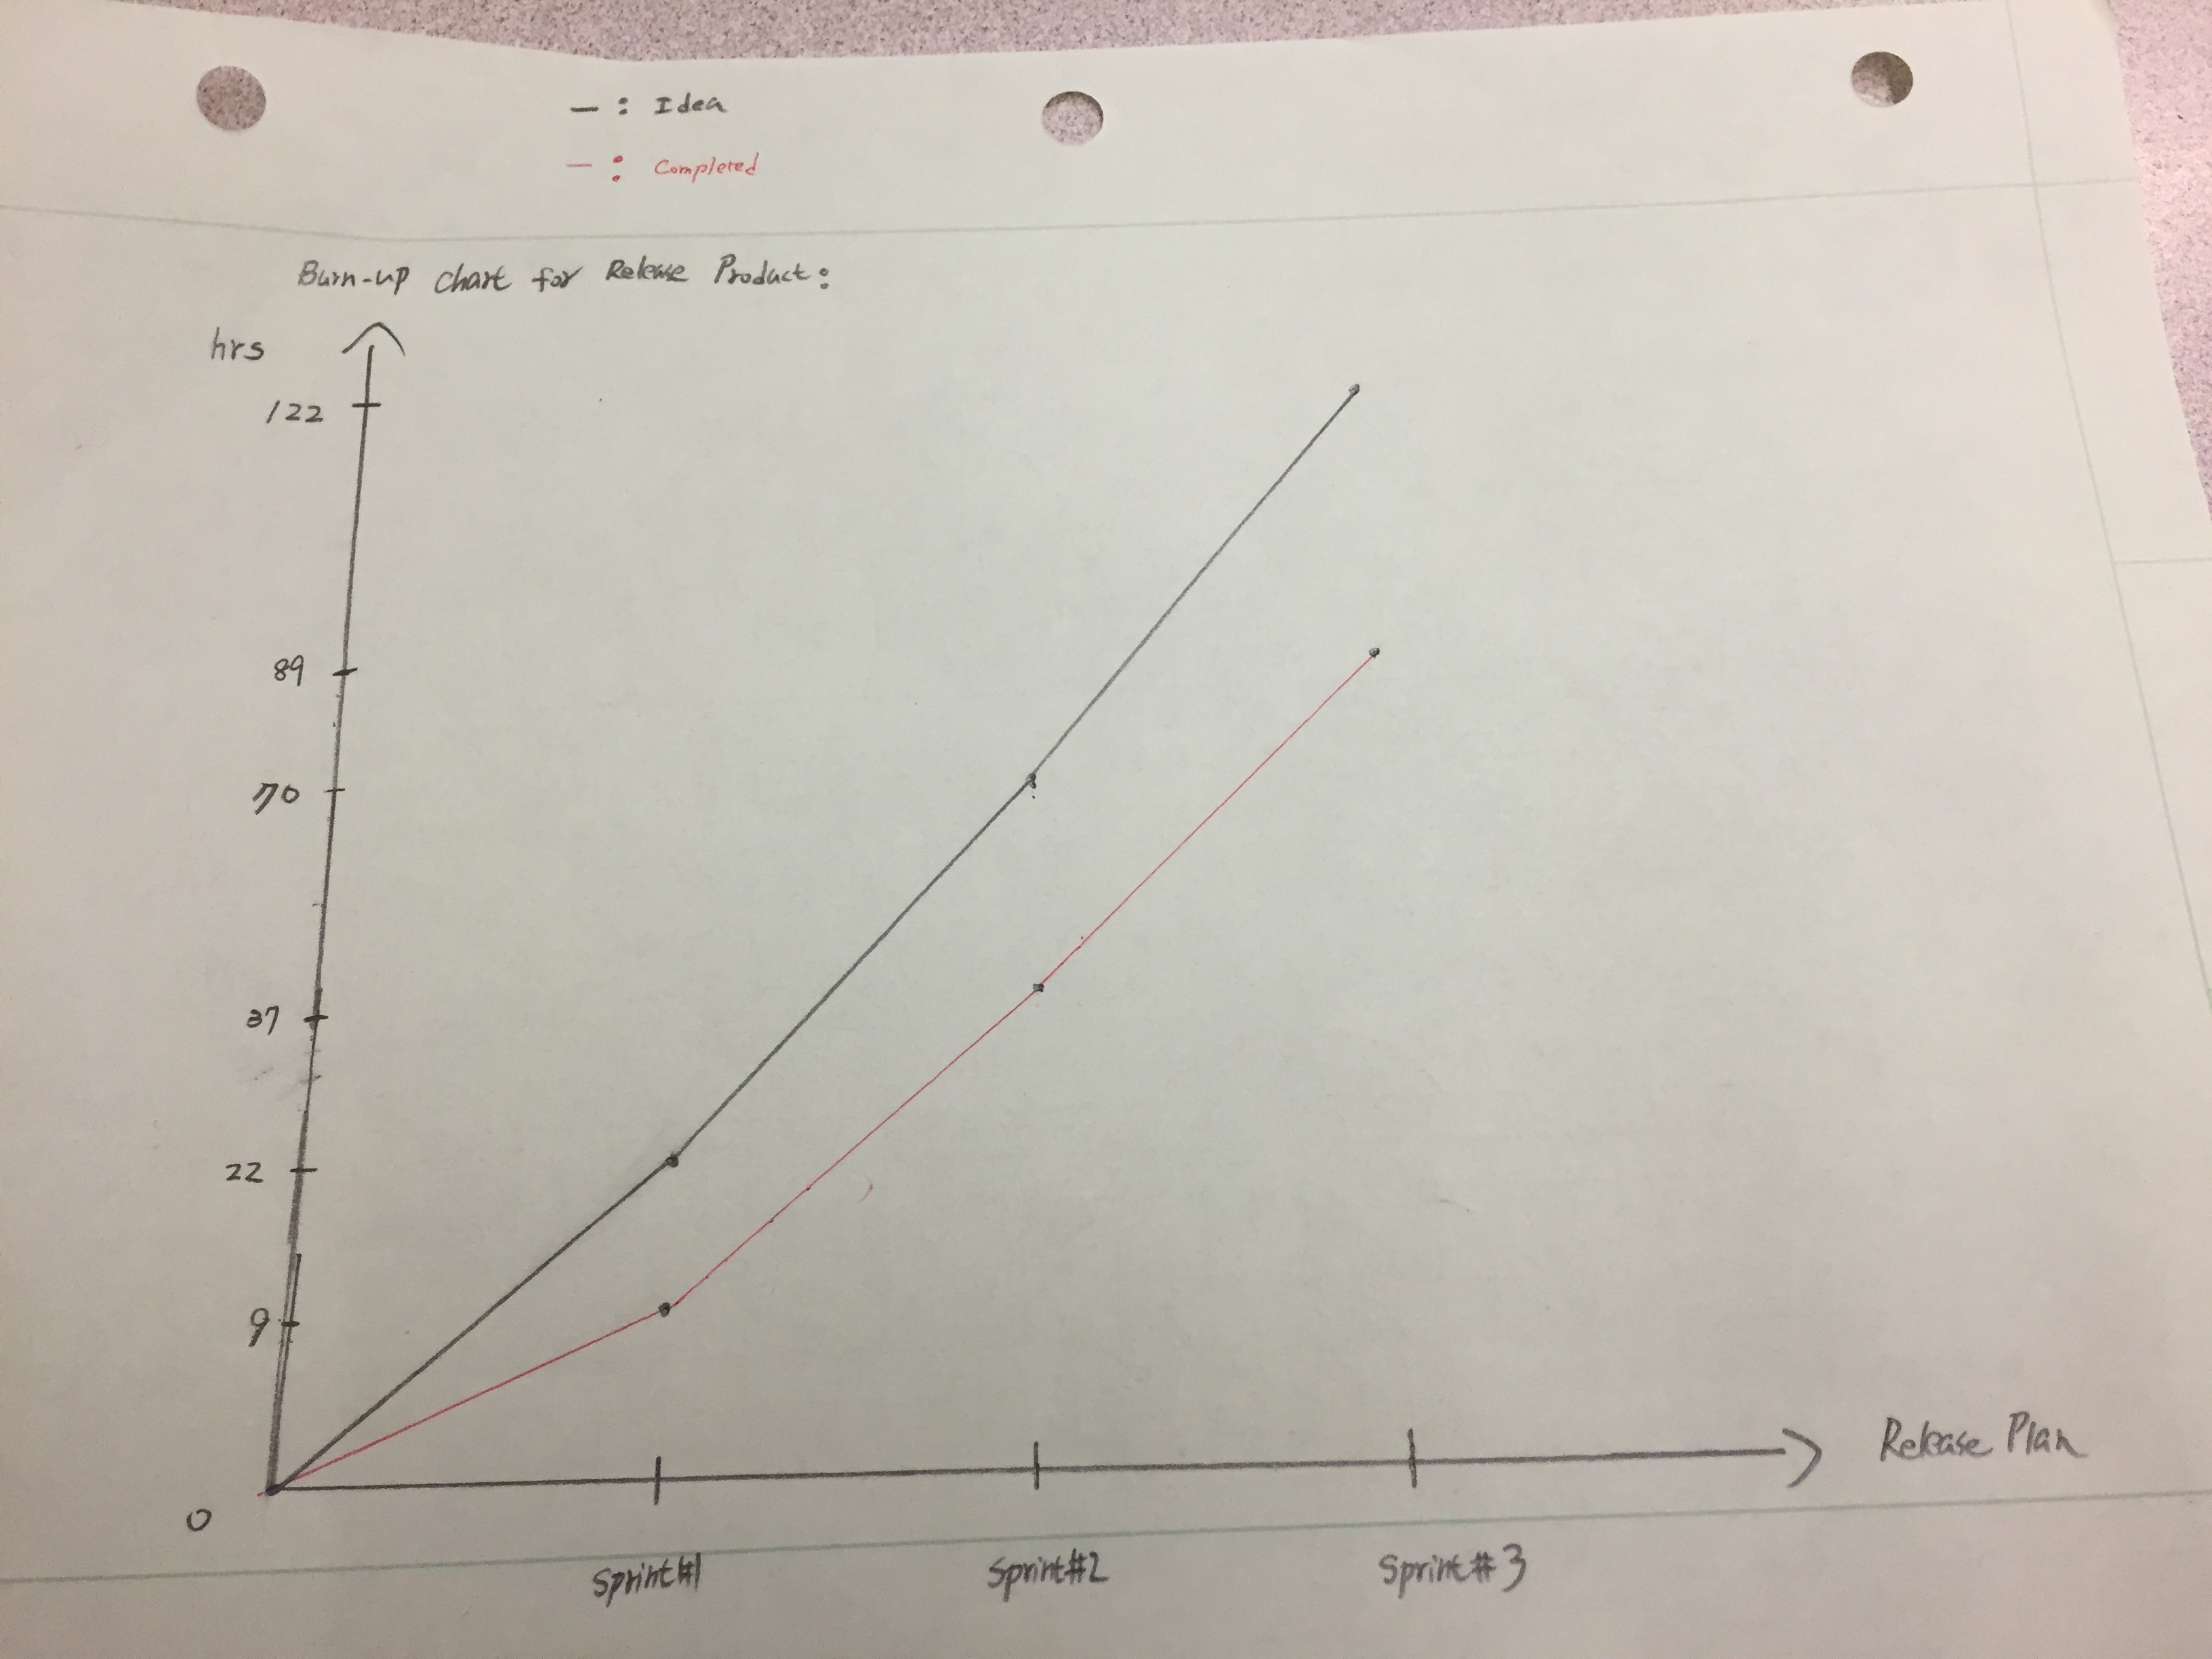 — : Idea
— : Completed
Burn-up Chart for Release Product :
hrs
122
89
70
37
22
9
0
Sprint#1 Sprint#2 Sprint#3
Release Plan